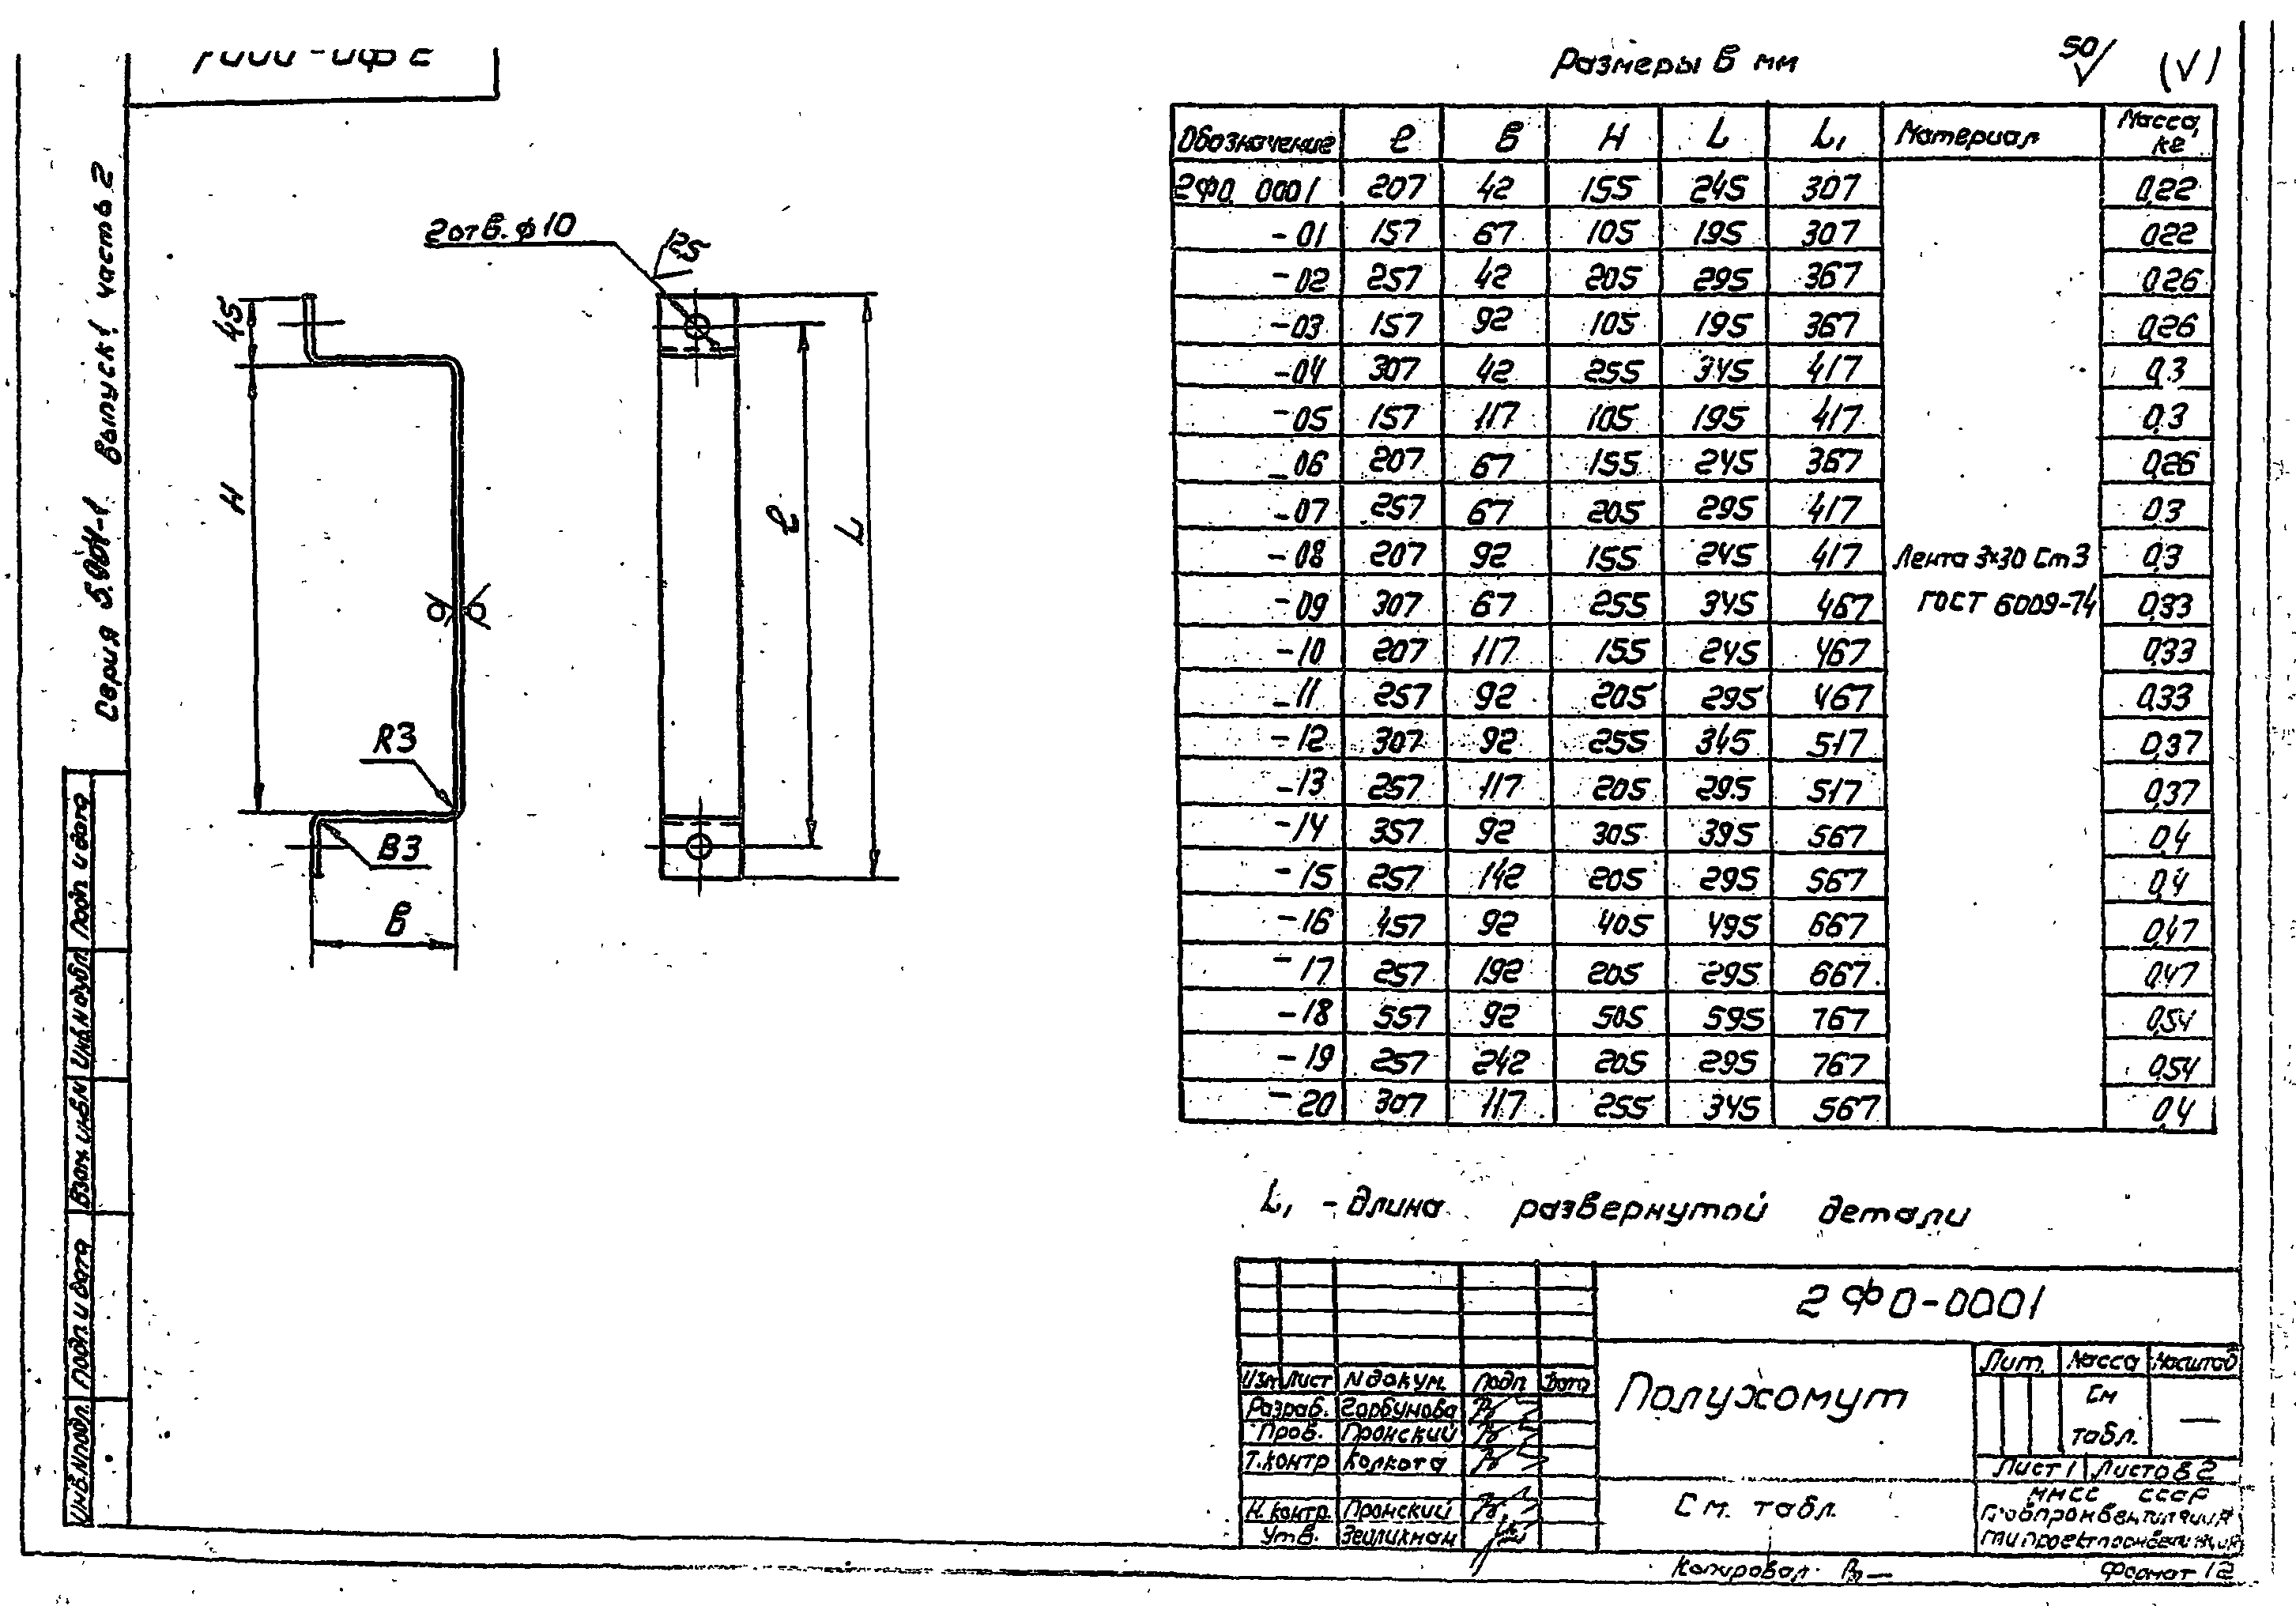 Размеры в мм
50 (√)
Обозначение ℓ В Н L L₁ Материал Масса, кг
2ФО. 0001 207 42 155 245 307 0,22
-01 157 67 105 195 307 0,22
-02 257 42 205 295 367 0,26
-03 157 92 105 195 367 0,26
-04 307 42 255 345 417 0,3
-05 157 117 105 195 417 0,3
-06 207 67 155 245 367 0,26
-07 257 67 205 295 417 0,3
-08 207 92 155 245 417 Лента 3×30 Ст3 0,3
-09 307 67 255 345 467 ГОСТ 6009-74 0,33
-10 207 117 155 245 467 0,33
-11 257 92 205 295 467 0,33
-12 307 92 255 345 517 0,37
-13 257 117 205 295 517 0,37
-14 357 92 305 395 567 0,4
-15 257 142 205 295 567 0,4
-16 457 92 405 495 667 0,47
-17 257 192 205 295 667 0,47
-18 557 92 505 595 767 0,54
-19 257 242 205 295 767 0,54
-20 307 117 255 345 567 0,4
L₁ - длина развернутой детали
2отв. ф10
25
45
Н
R3
В3
В
ℓ
L
Серия 5.904-1 выпуск 1 часть 2
Подп и дата
Инв.N дубл.
Взам. инв.N
Подп и дата
Инв.N подл.
2ФО-0001
Полухомут
См. табл.
Лит. Масса Масштаб
См табл. —
Лист 1 Листов 2
ММСС СССР
Изм Лист N докум. Подп. Дата
Разраб. Горбунова
Пров. Пронский
Т.контр Колкота
Н.контр. Пронский
Утв.
Копировал
Формат 12